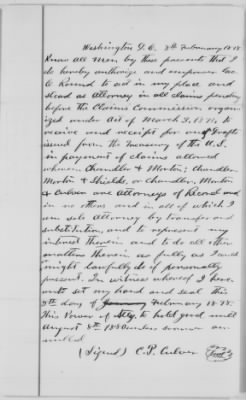 Washington D.C. 8th February 1878
Know all Men by these presents that I
do hereby authorize and empower
to Round to act in my place and
stead as Attorney in all claims pending
before the Claims Commission organ-
ized under Act of March 3, 1871, to
receive and receipt for any Draft
issued from the Treasury of the U.S.
in payment of claims allowed
wherein Chandler & Morton; Chandler
Morton & Shields, or Chandler, Morton
& Culver are attorneys of Record and
in no others and in all of which I
am sole Attorney by transfer and
substitution, and to represent my
interest therein and to do all other
matters therein as fully as I
might lawfully do if personally
present. In witness whereof I here-
unto set my hand and seal this
8th day of February 1878.
This Power of Atty. to hold good until
August 8th unless sooner an-
nulled
(Signed) C.P. Culver